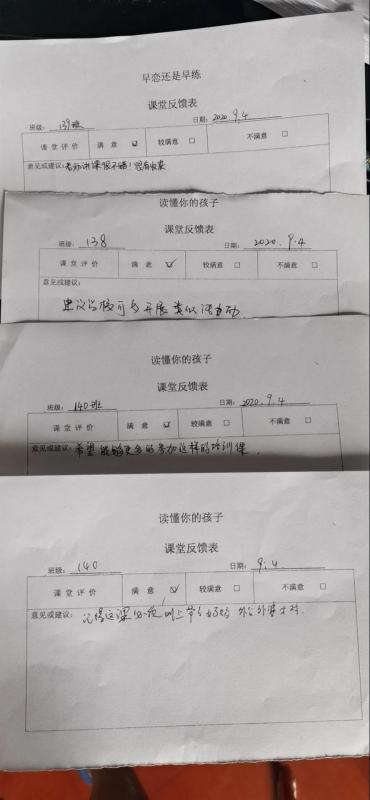 早恋还是早练
课堂反馈表
班级: 139班 日期: 2020.9.4
课堂评价 满意 ☑ 较满意 □ 不满意 □
意见或建议: 老师讲课很不错!很有收获
读懂你的孩子
课堂反馈表
班级: 138 日期: 2020.9.4
课堂评价 满意 ☑ 较满意 □ 不满意 □
意见或建议:
建议学校可多开展类似活动
读懂你的孩子
课堂反馈表
班级: 140班 日期: 2020.9.4
课堂评价 满意 ☑ 较满意 □ 不满意 □
意见或建议: 希望能够更多的参加这样的培训课.
读懂你的孩子
课堂反馈表
班级: 140 9.4
课堂评价 满意 ☑ 较满意 □ 不满意 □
意见或建议: 这课